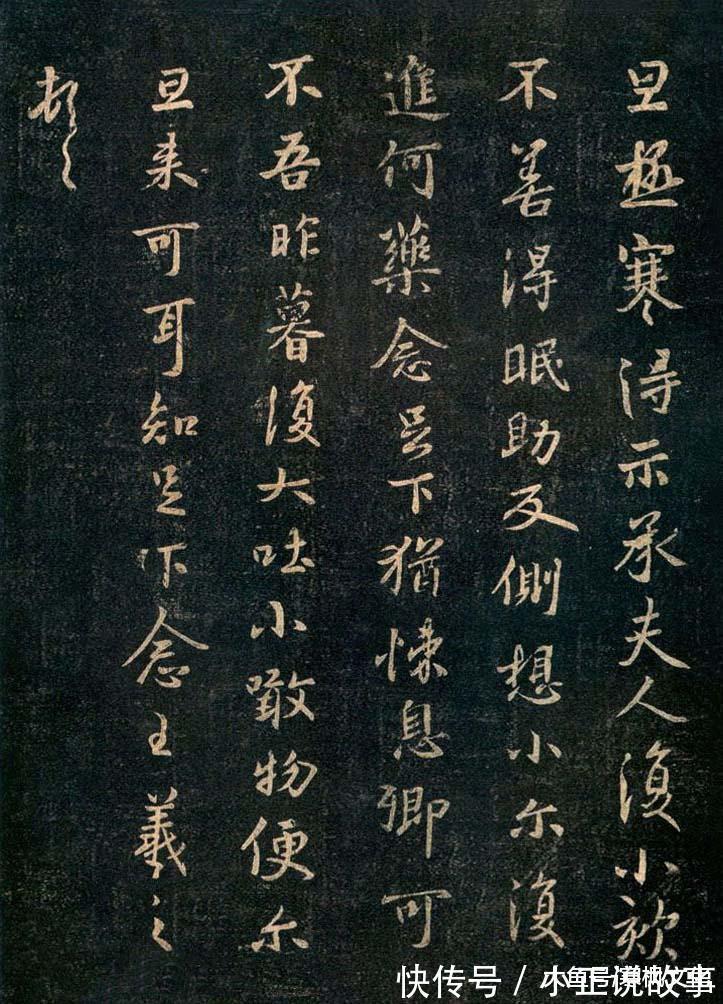 旦極寒得示承夫人復小欬
不善得眠助反側想小尔復
進何藥念足下猶悚息卿可
不吾昨暮復大吐小噉物便尔
旦来可耳知足下念王羲之
頓
快传号/小正说故事